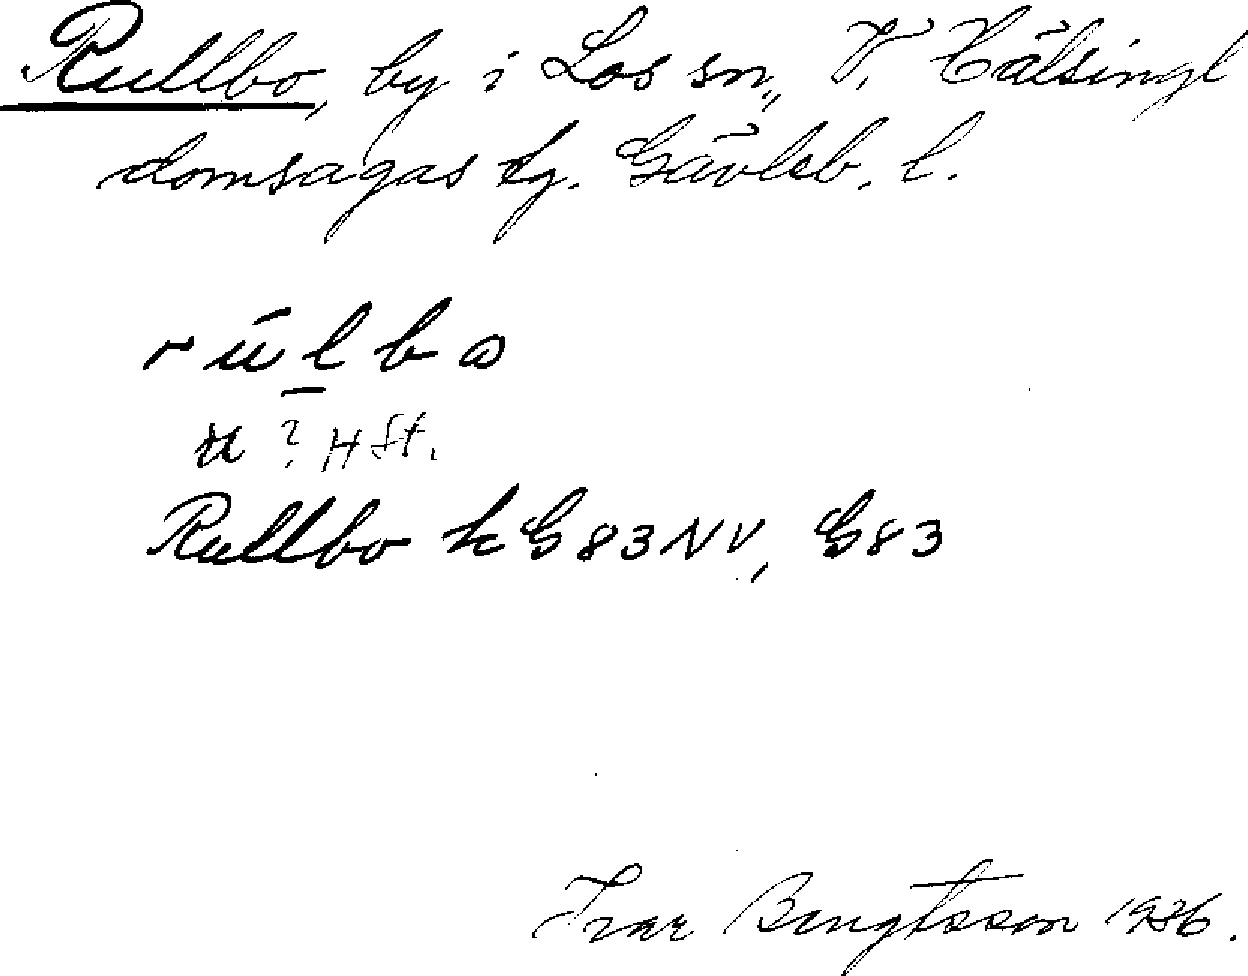 Rullbo, by i Los sn, V. Hälsingl
domsagas tg. Gävleb. l.
r ú l b o
u ? H St.
Rullbo k G 83 NV, G 83
Ivar Bengtsson 1936.